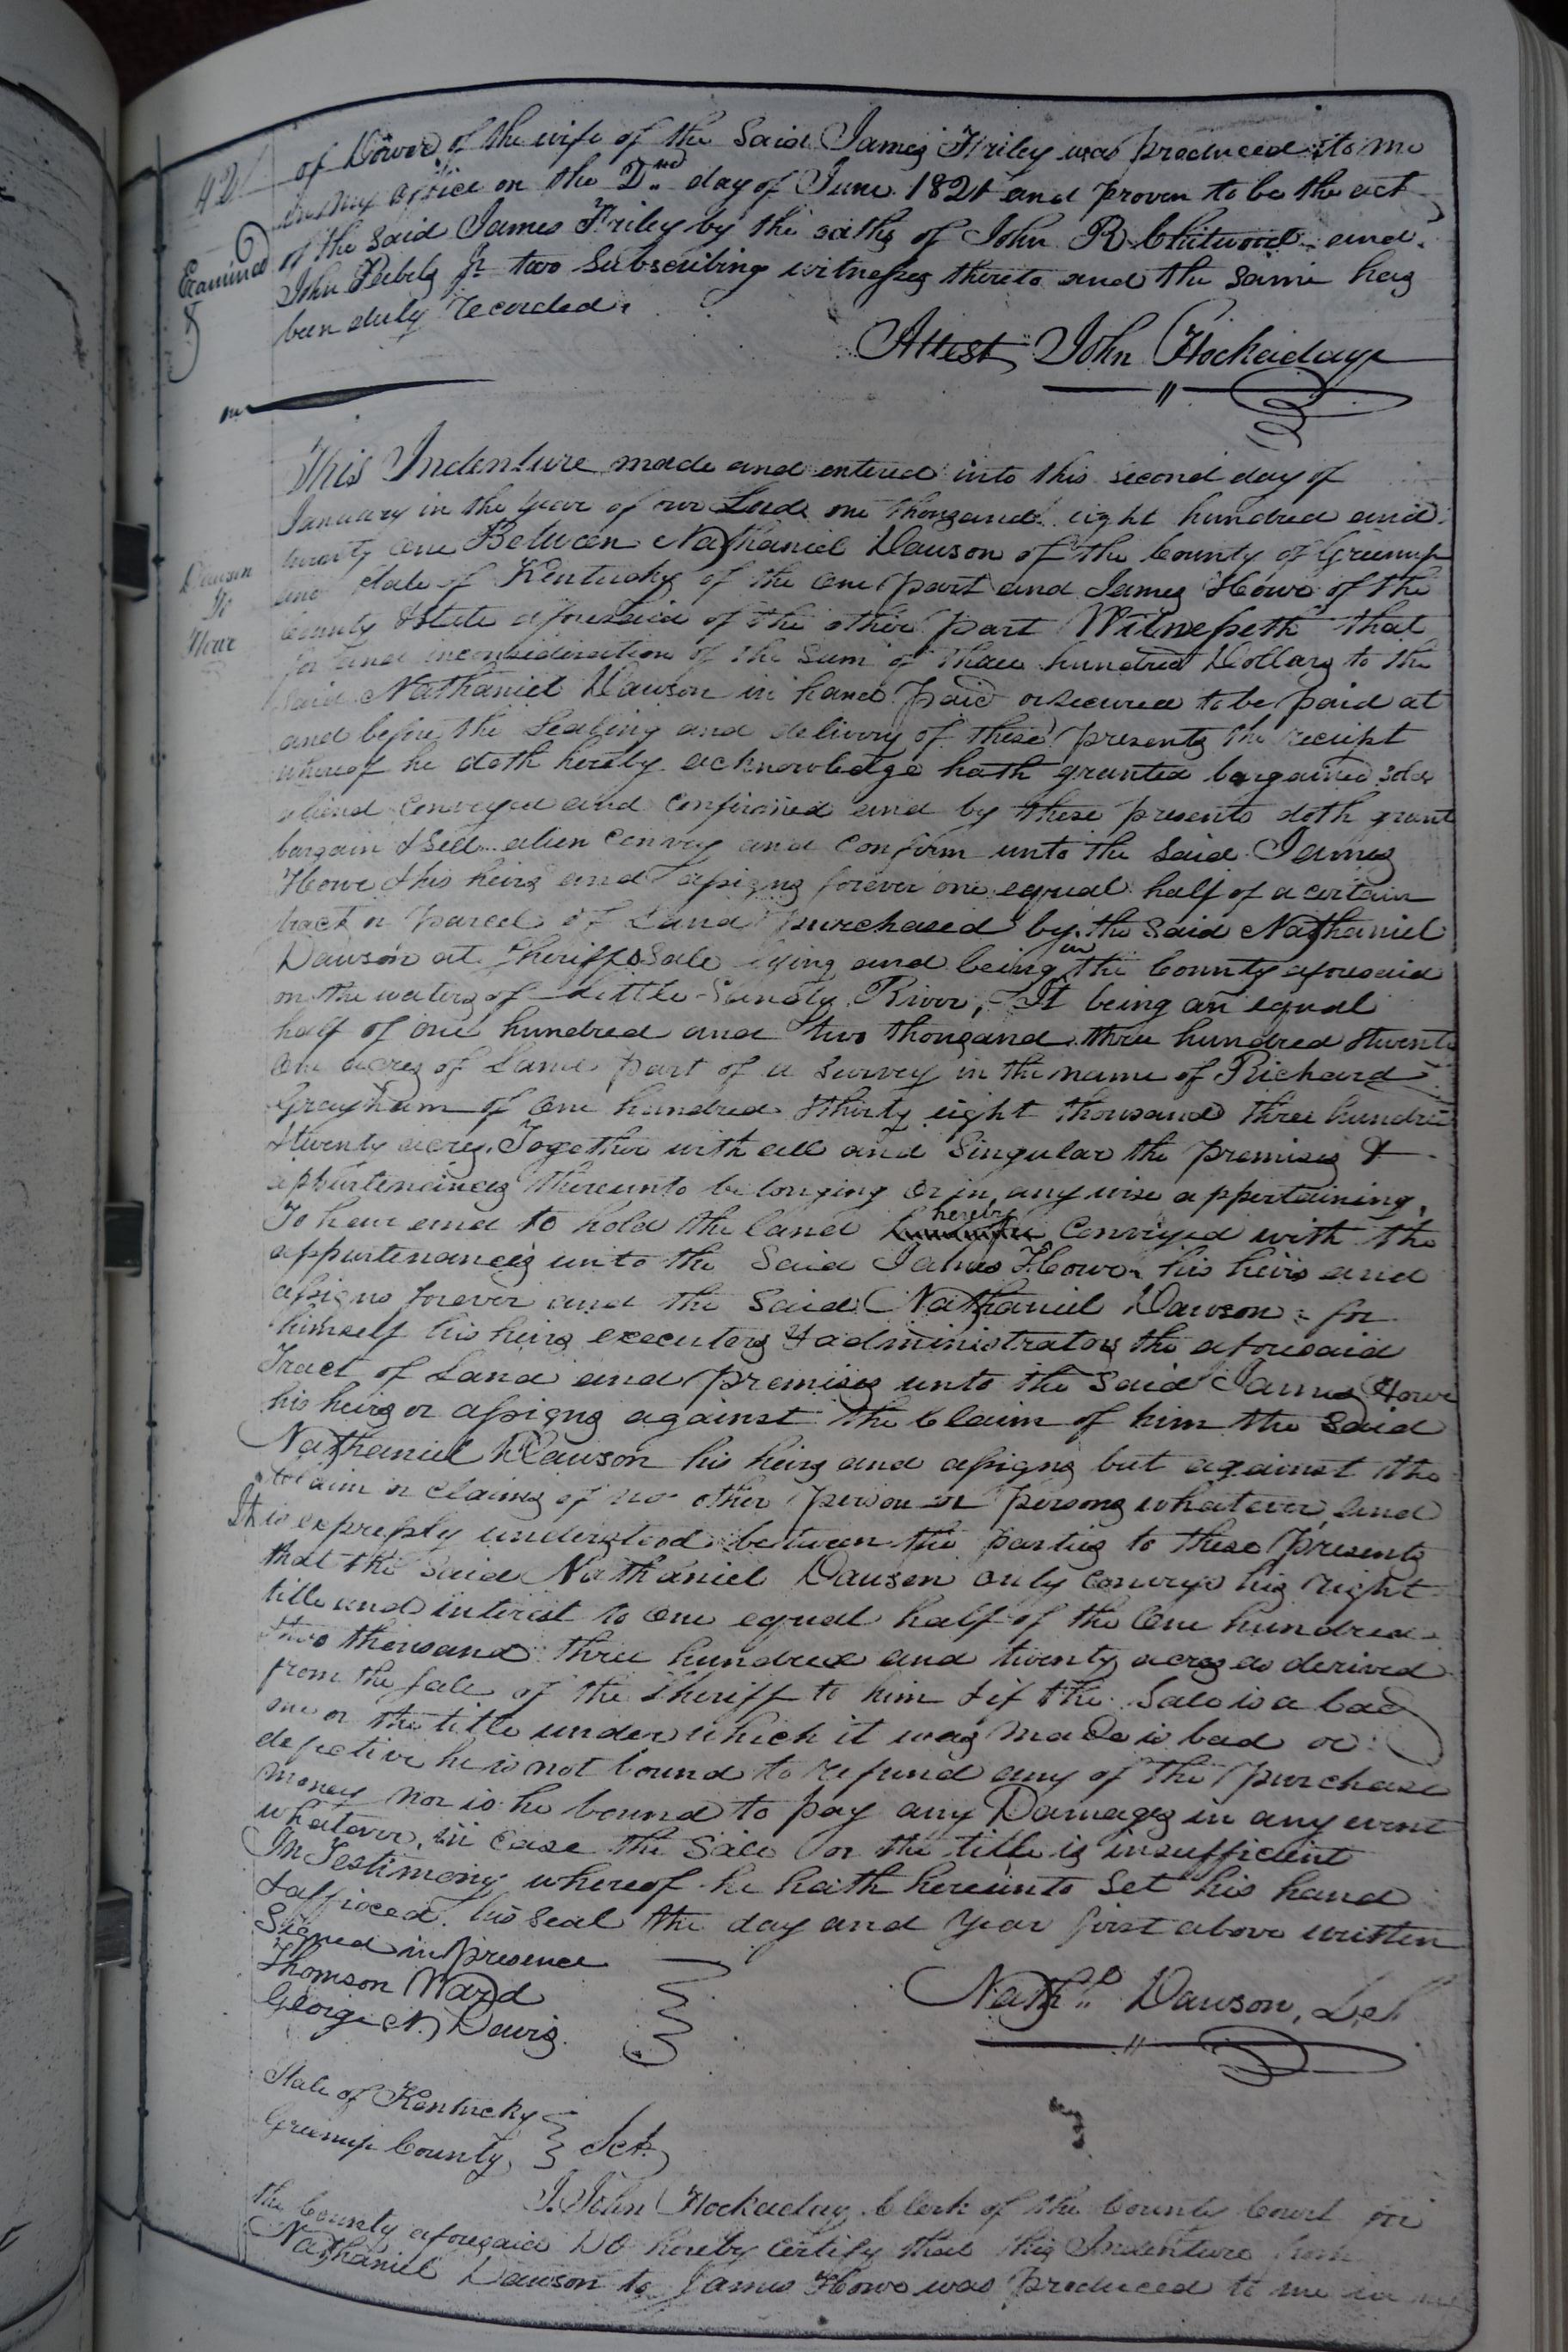 42
of Dower of the wife of the Said James Friley was produced to me
in my office on the 2nd day of June 1821 and proven to be the act
Examined
of the Said James Friley by the oaths of John R Chitwood and
John Peebly Jr two Subscribing witnesses thereto and the same has
been duly recorded.
Attest John Hockaday
This Indenture made and entered into this second day of
January in the year of our Lord one thousand eight hundred and
twenty one Between Nathaniel Dawson of the County of Greenup
and State of Kentucky of the one part and James Howe of the
Dawson
To
Howe
County & State aforesaid of the other part Witnesseth that
for and inconsideration of the Sum of three hundred Dollars to the
said Nathaniel Dawson in hand paid or secured to be paid at
and before the Sealing and delivery of these presents the receipt
whereof he doth hereby acknowledge hath granted bargained sold
aliend conveyed and confirmed and by these presents doth grant
bargain & sell alien convey and confirm unto the said James
Howe & his heirs and assigns forever one equal half of a certain
tract or parcel of Land purchased by the said Nathaniel
Dawson at Sheriffs Sale lying and being in the County aforesaid
on the waters of Little Sandy River, It being an equal
half of one hundred and two thousand three hundred & twenty
one acres of Land part of a survey in the name of Richard
Grayham of one hundred & thirty eight thousand three hundred
& twenty acres. Together with all and Singular the premises &
appurtenances thereunto belonging or in any wise appertaining,
To have and to hold the land hereby conveyed with the
appurtenances unto the Said James Howe his heirs and
assigns forever and the Said Nathaniel Dawson for
himself his heirs executors & administrators the aforesaid
Tract of Land and premises unto the Said James Howe
his heirs or assigns against the Claim of him the Said
Nathaniel Dawson his heirs and assigns but against the
claim or claims of no other person or persons whatever, and
It is expressly understood between the parties to these presents
that the Said Nathaniel Dawson only conveys his right
title and interest to one equal half of the One hundred
& two thousand three hundred and twenty acres as derived
from the sale of the Sheriff to him & if the Sale is a bad
one or the title under which it was made is bad or
defective he is not bound to refund any of the purchase
money nor is he bound to pay any Damages in any event
whatever, in case the Sale or the title is insufficient
In Testimony whereof he hath hereunto Set his hand
& affixed his seal the day and year first above written
Signed in presence
Thomson Ward
George N. Davis
Nathl. Dawson, L.S.
State of Kentucky
Greenup County, Sct.
I John Hockaday Clerk of the County Court for
the County aforesaid Do hereby certify that this Indenture from
Nathaniel Dawson to James Howe was produced to me in my